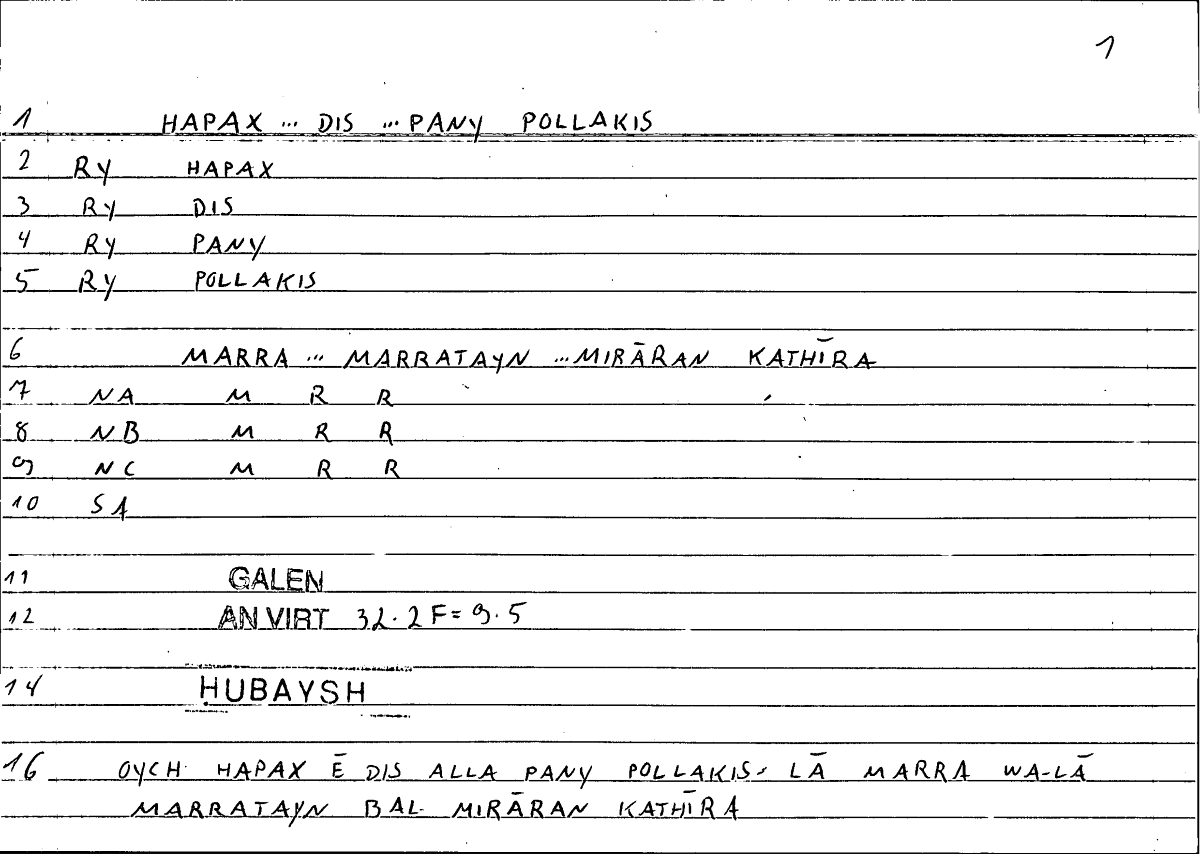 1
1 HAPAX ... DIS ... PANY POLLAKIS
2 RY HAPAX
3 RY DIS
4 RY PANY
5 RY POLLAKIS
6 MARRA ... MARRATAYN ... MIRĀRAN KATHĪRA
7 NA M R R
8 NB M R R
9 NC M R R
10 SA
11 GALEN
12 AN VIRT 32.2F=9.5
14 ḤUBAYSH
16 OYCH HAPAX Ē DIS ALLA PANY POLLAKIS- LĀ MARRA WA-LĀ
MARRATAYN BAL MIRĀRAN KATHĪRA